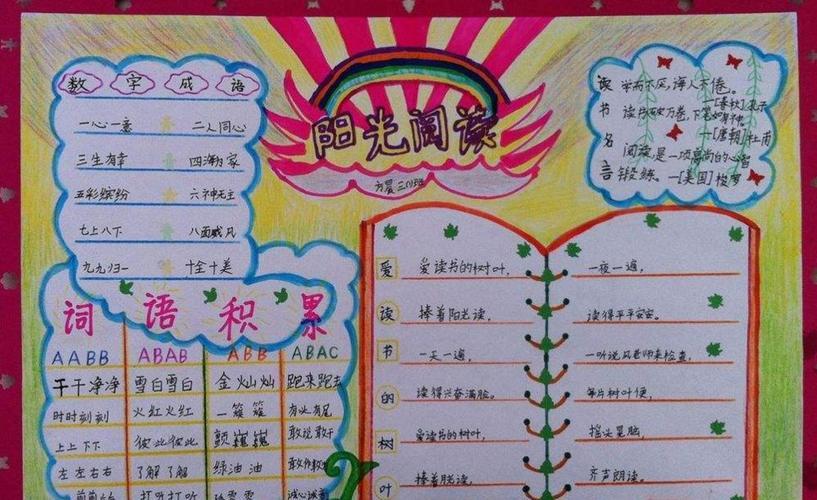 阳光阅读
数字成语
一心一意 二人同心
三生有幸 四海为家
五彩缤纷 六神无主
七上八下 八面威风
九九归一 十全十美
读书名言
学而不厌,诲人不倦。
—[春秋]孔子
读书破万卷,下笔如有神。
—[唐朝]杜甫
阅读,是一项高尚的心智
锻练。—[美国]梭罗
词语积累
AABB ABAB ABB ABAC
干干净净 雪白雪白 金灿灿 跑来跑去
时时刻刻 火红火红 一簇簇 有山有尾
上上下下 彼此彼此 颤巍巍 敢说敢干
左左右右 了解了解 绿油油 敢作敢
打听打听 诚心诚意
爱读书的树叶
爱读书的树叶,
捧着阳光读,
一天一遍,
读得兴奋满脸。
爱读书的树叶,
捧着月光读,
一夜一遍,
读得平平安安。
一听说风老师来检查,
每片树叶便,
摇头晃脑,
齐声朗读。